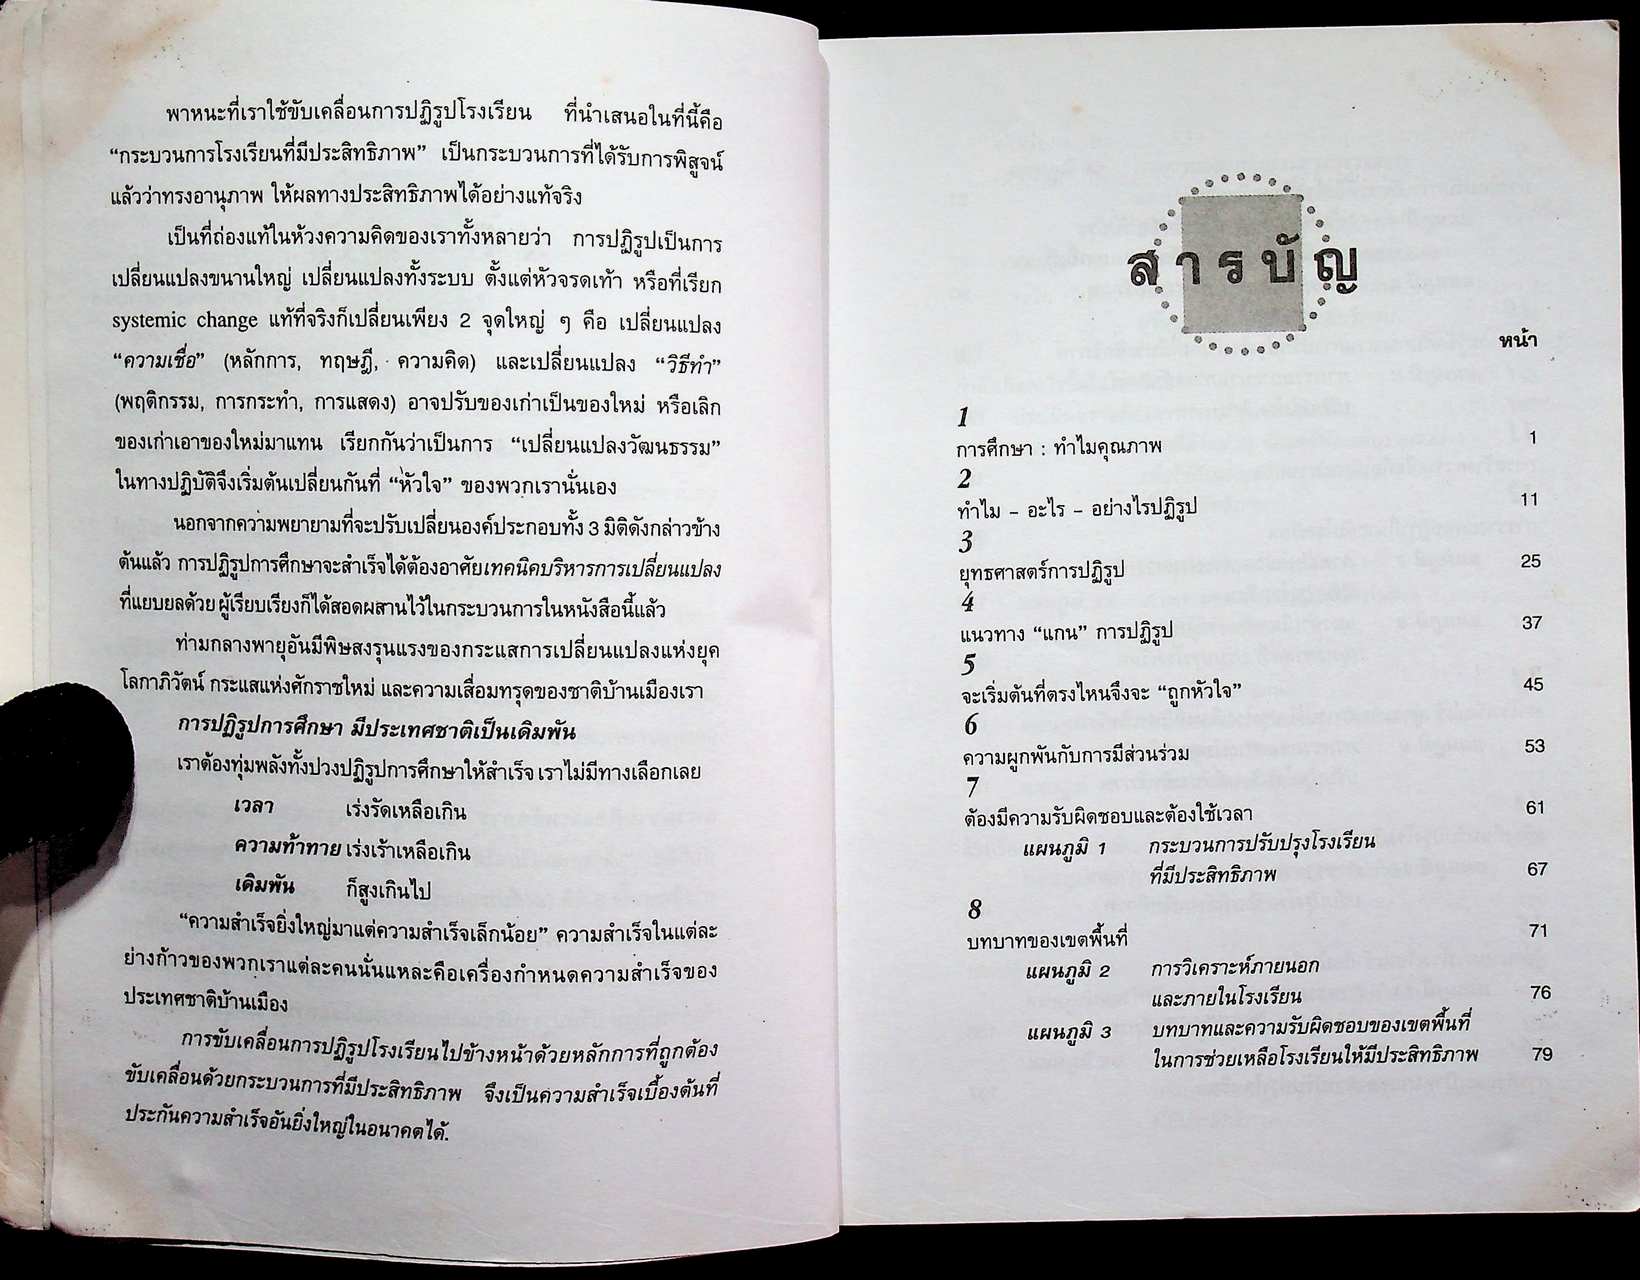 พาหนะที่เราใช้ขับเคลื่อนการปฏิรูปโรงเรียน ที่นำเสนอในที่นี้คือ
“กระบวนการโรงเรียนที่มีประสิทธิภาพ” เป็นกระบวนการที่ได้รับการพิสูจน์
แล้วว่าทรงอานุภาพ ให้ผลทางประสิทธิภาพได้อย่างแท้จริง
เป็นที่ถ่องแท้ในห้วงความคิดของเราทั้งหลายว่า การปฏิรูปเป็นการ
เปลี่ยนแปลงขนานใหญ่ เปลี่ยนแปลงทั้งระบบ ตั้งแต่หัวจรดเท้า หรือที่เรียก
systemic change แท้ที่จริงก็เปลี่ยนเพียง 2 จุดใหญ่ ๆ คือ เปลี่ยนแปลง
“ความเชื่อ” (หลักการ, ทฤษฎี, ความคิด) และเปลี่ยนแปลง “วิธีทำ”
(พฤติกรรม, การกระทำ, การแสดง) อาจปรับของเก่าเป็นของใหม่ หรือเลิก
ของเก่าเอาของใหม่มาแทน เรียกกันว่าเป็นการ “เปลี่ยนแปลงวัฒนธรรม”
ในทางปฏิบัติจึงเริ่มต้นเปลี่ยนกันที่ “หัวใจ” ของพวกเรานั่นเอง
นอกจากความพยายามที่จะปรับเปลี่ยนองค์ประกอบทั้ง 3 มิติดังกล่าวข้าง
ต้นแล้ว การปฏิรูปการศึกษาจะสำเร็จได้ต้องอาศัยเทคนิคบริหารการเปลี่ยนแปลง
ที่แยบยลด้วย ผู้เรียบเรียงก็ได้สอดผสานไว้ในกระบวนการในหนังสือนี้แล้ว
ท่ามกลางพายุอันมีพิษสงรุนแรงของกระแสการเปลี่ยนแปลงแห่งยุค
โลกาภิวัตน์ กระแสแห่งศักราชใหม่ และความเสื่อมทรุดของชาติบ้านเมืองเรา
การปฏิรูปการศึกษา มีประเทศชาติเป็นเดิมพัน
เราต้องทุ่มพลังทั้งปวงปฏิรูปการศึกษาให้สำเร็จ เราไม่มีทางเลือกเลย
เวลา เร่งรัดเหลือเกิน
ความท้าทาย เร่งเร้าเหลือเกิน
เดิมพัน ก็สูงเกินไป
“ความสำเร็จยิ่งใหญ่มาแต่ความสำเร็จเล็กน้อย” ความสำเร็จในแต่ละ
ย่างก้าวของพวกเราแต่ละคนนั่นแหละคือเครื่องกำหนดความสำเร็จของ
ประเทศชาติบ้านเมือง
การขับเคลื่อนการปฏิรูปโรงเรียนไปข้างหน้าด้วยหลักการที่ถูกต้อง
ขับเคลื่อนด้วยกระบวนการที่มีประสิทธิภาพ จึงเป็นความสำเร็จเบื้องต้นที่
ประกันความสำเร็จอันยิ่งใหญ่ในอนาคตได้.
สารบัญ
หน้า
1
การศึกษา : ทำไมคุณภาพ 1
2
ทำไม – อะไร – อย่างไรปฏิรูป 11
3
ยุทธศาสตร์การปฏิรูป 25
4
แนวทาง “แกน” การปฏิรูป 37
5
จะเริ่มต้นที่ตรงไหนจึงจะ “ถูกหัวใจ” 45
6
ความผูกพันกับการมีส่วนร่วม 53
7
ต้องมีความรับผิดชอบและต้องใช้เวลา 61
แผนภูมิ 1 กระบวนการปรับปรุงโรงเรียน
ที่มีประสิทธิภาพ 67
8
บทบาทของเขตพื้นที่ 71
แผนภูมิ 2 การวิเคราะห์ภายนอก
และภายในโรงเรียน 76
แผนภูมิ 3 บทบาทและความรับผิดชอบของเขตพื้นที่
ในการช่วยเหลือโรงเรียนให้มีประสิทธิภาพ 79